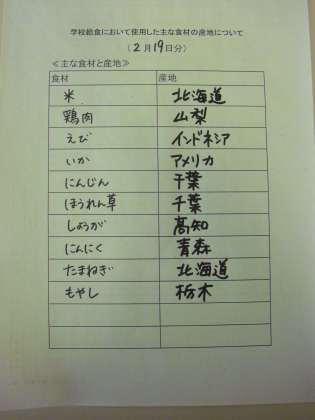 学校給食において使用した主な食材の産地について
(2月19日分)
≪主な食材と産地≫
食材 産地
米 北海道
鶏肉 山梨
えび インドネシア
いか アメリカ
にんじん 千葉
ほうれん草 千葉
しょうが 高知
にんにく 青森
たまねぎ 北海道
もやし 栃木